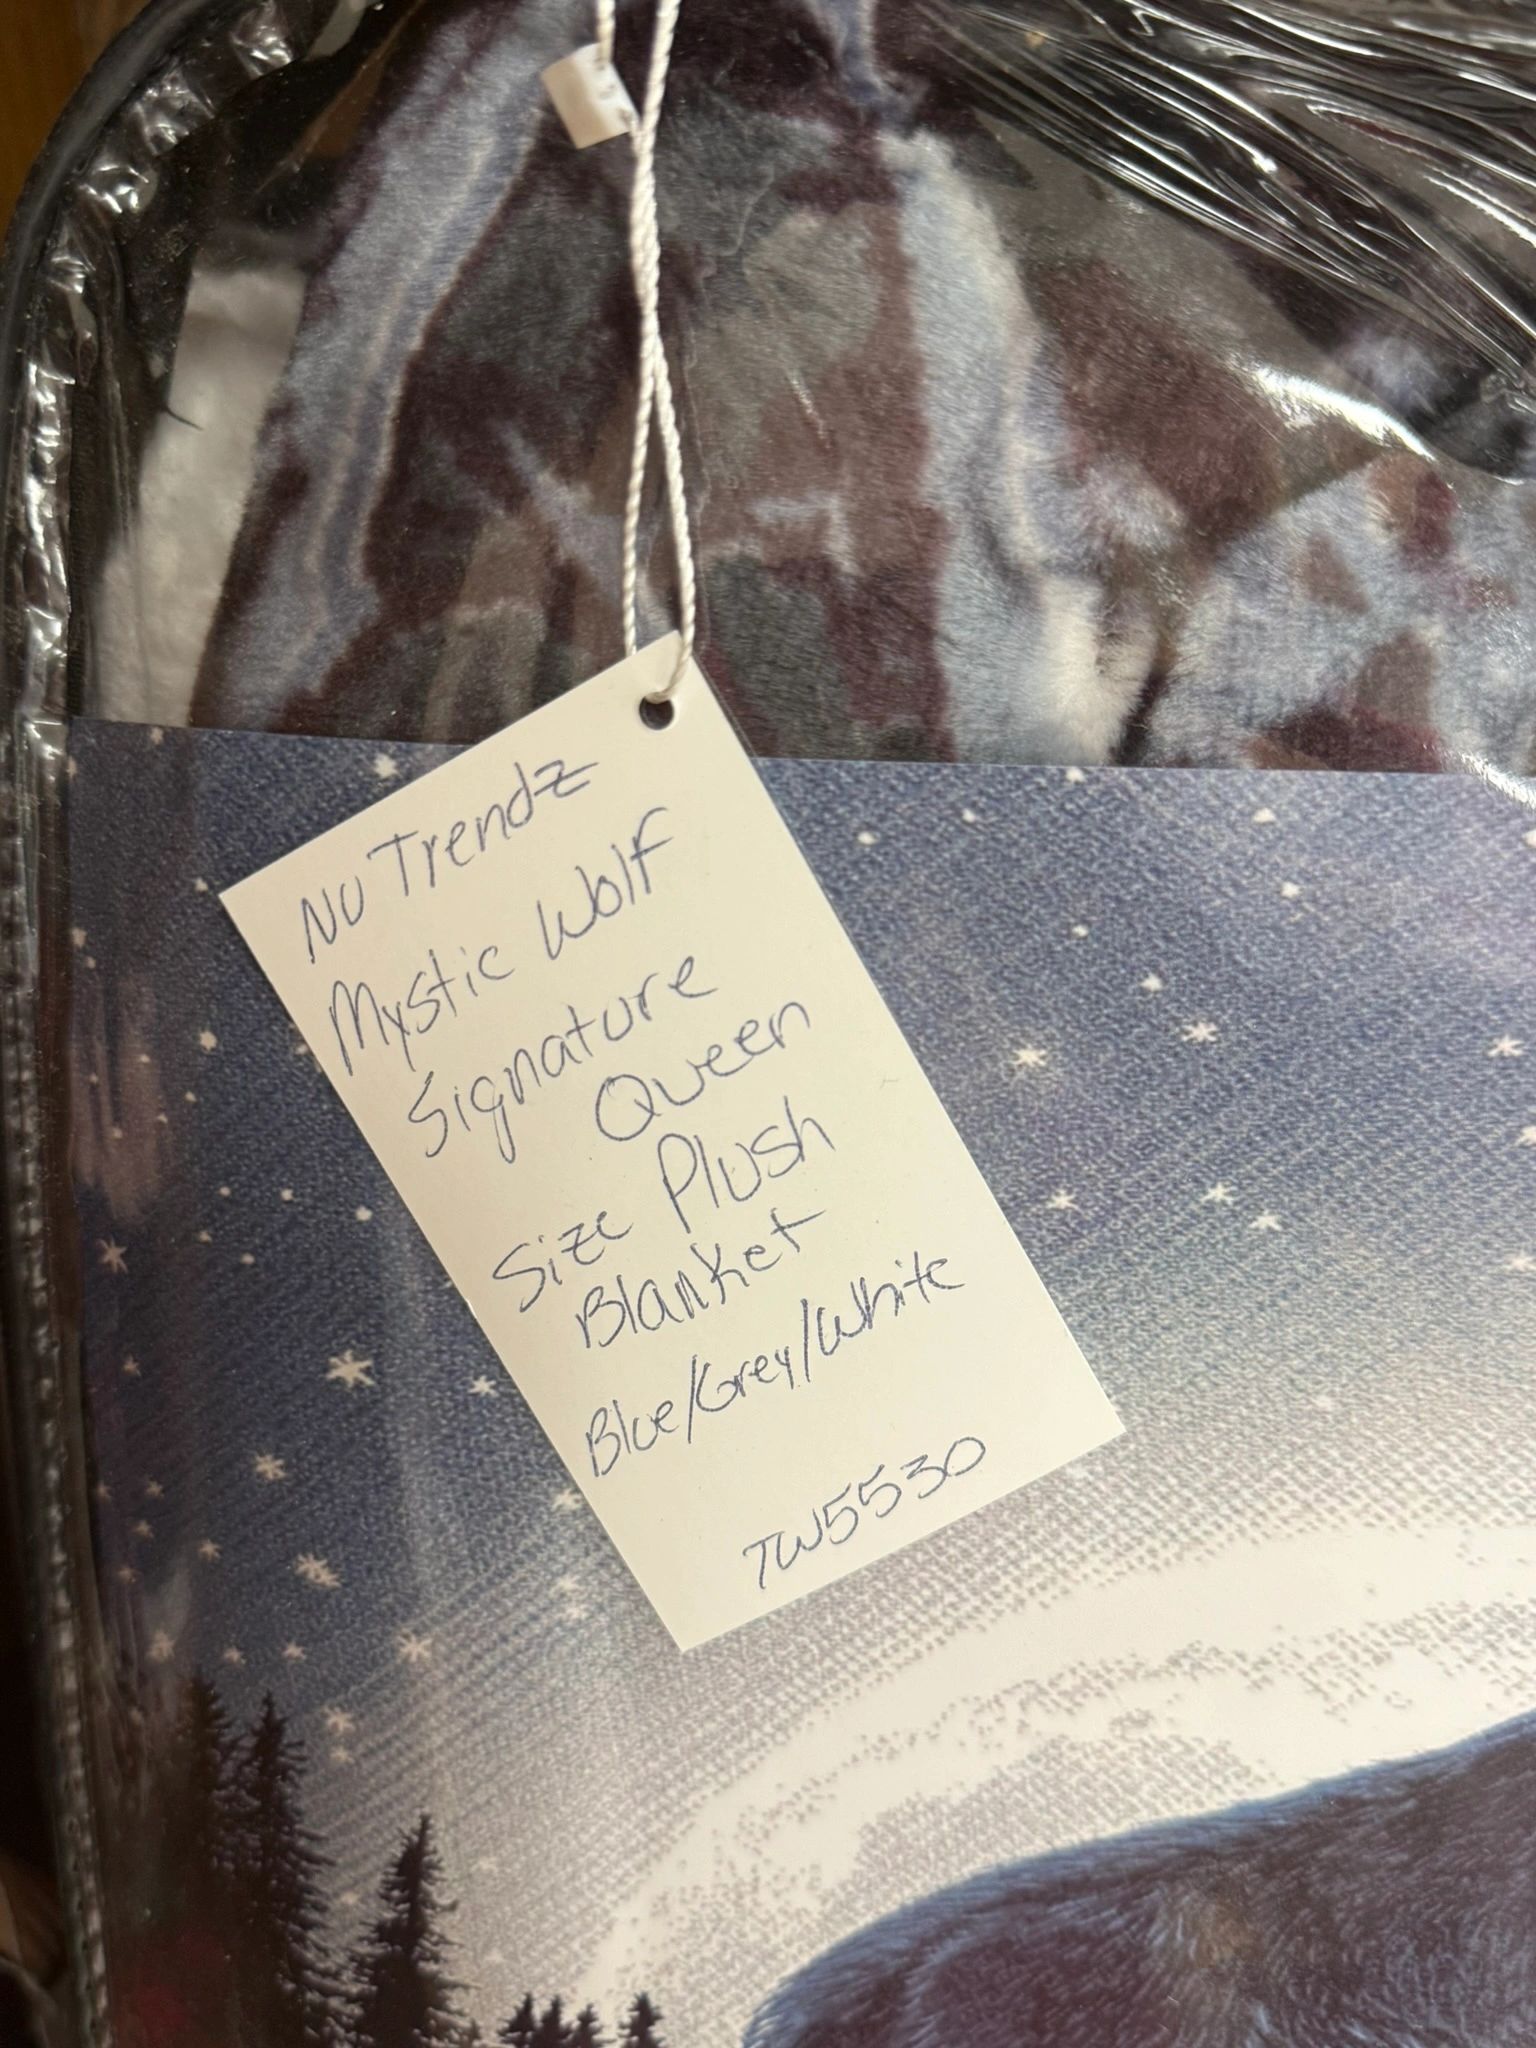 NU Trendz
Mystic Wolf
Signature
Queen
Size Plush
Blanket
Blue/Grey/White
TW5530